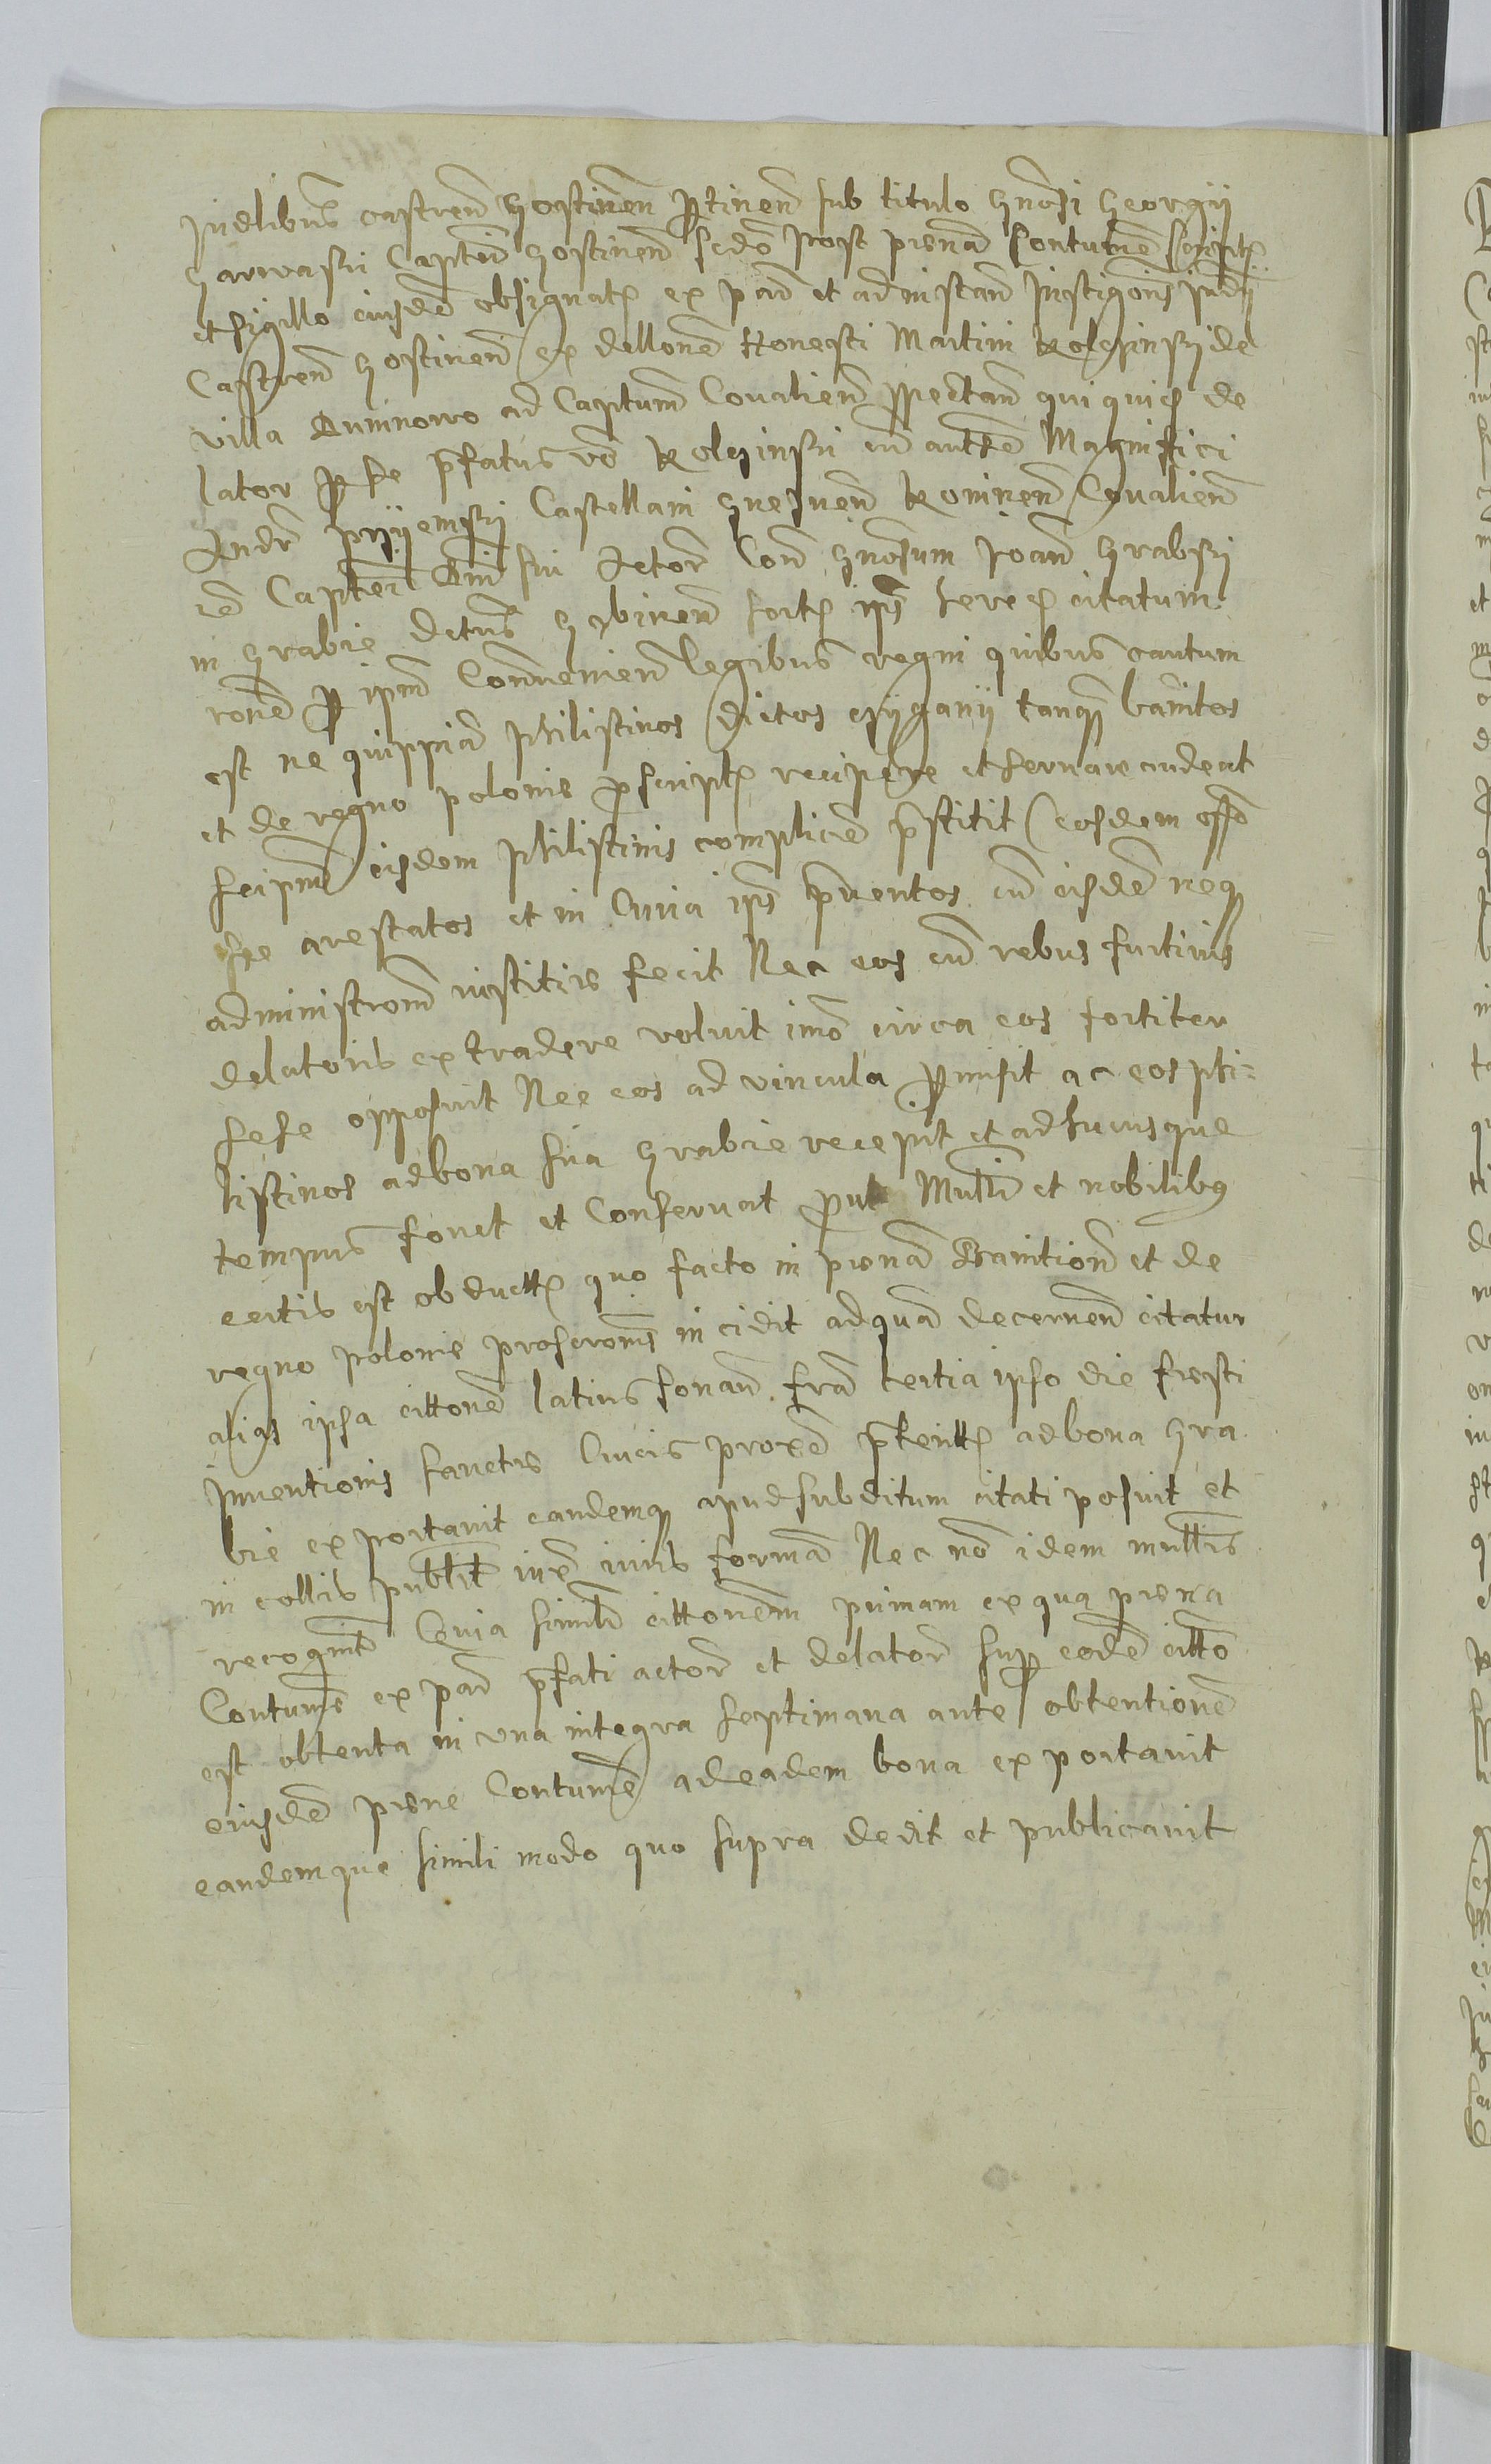 Judlibus castren Gostinen ptinen sub titulo Gnosi Georgii
Garwaski Captei Gostinen scdo post pena Contume script
et sigillo eiusde obsignat ex pari et ad instan Instigonis Judii
Castren Gostinen ex dellone Honesti Martini Kolczinski de
villa Duninowo ad Captum Covalien spectan qui quid de
lator p se pfatus vo Kolczinski cu autte Magnifici
Andr Pryiemski Castellani Gnesnen Koninen Covalien
Captei Dni sui Actor Con Gnosum Joan Grabski
in Grabie Dctus Gbinen citatum
rone p ipm Convenien legibus regni quibus cautum
est ne quippia Philistinos dictos czyganii tanq banitos
et de regno polonie pscript recipere et servare audeat
seipm eisdem Philistinis complice pstitit eosdem
arestatos et in Curia ips pventos cu eisde neq
administrom iustitie fecit Nec eos cu rebus furtivis
delatoris extradere voluit imo circa eos fortiter
sese opposuit Nec eos ad vincula pmisit ac eos phi-
listinos ad bona sua Grabie recepit et ad hucusque
tempus fovet et Conservat put Mulli et nobilibus
certis est obduct quo facto in pena Banition et de
regno polonie proscronis incidit ad qua decernen citatur
alias ipsa cittone latius sonan. fra tertia ipso die festi
Inventionis sancte Crucis proxe pterit ad bona Gra
bie exportavit eandemq apud subditum citati posuit et
in collis publit iux iuris forma Nec no idem mullris
recognit Quia simili cittonem primam ex qua pena
Contume ex par pfati actor et delator sup eode citto
est obtenta in una integra septimana ante obtentione
eiusde pene Contume ad eadem bona exportavit
eandemque simili modo quo supra dedit et publicavit